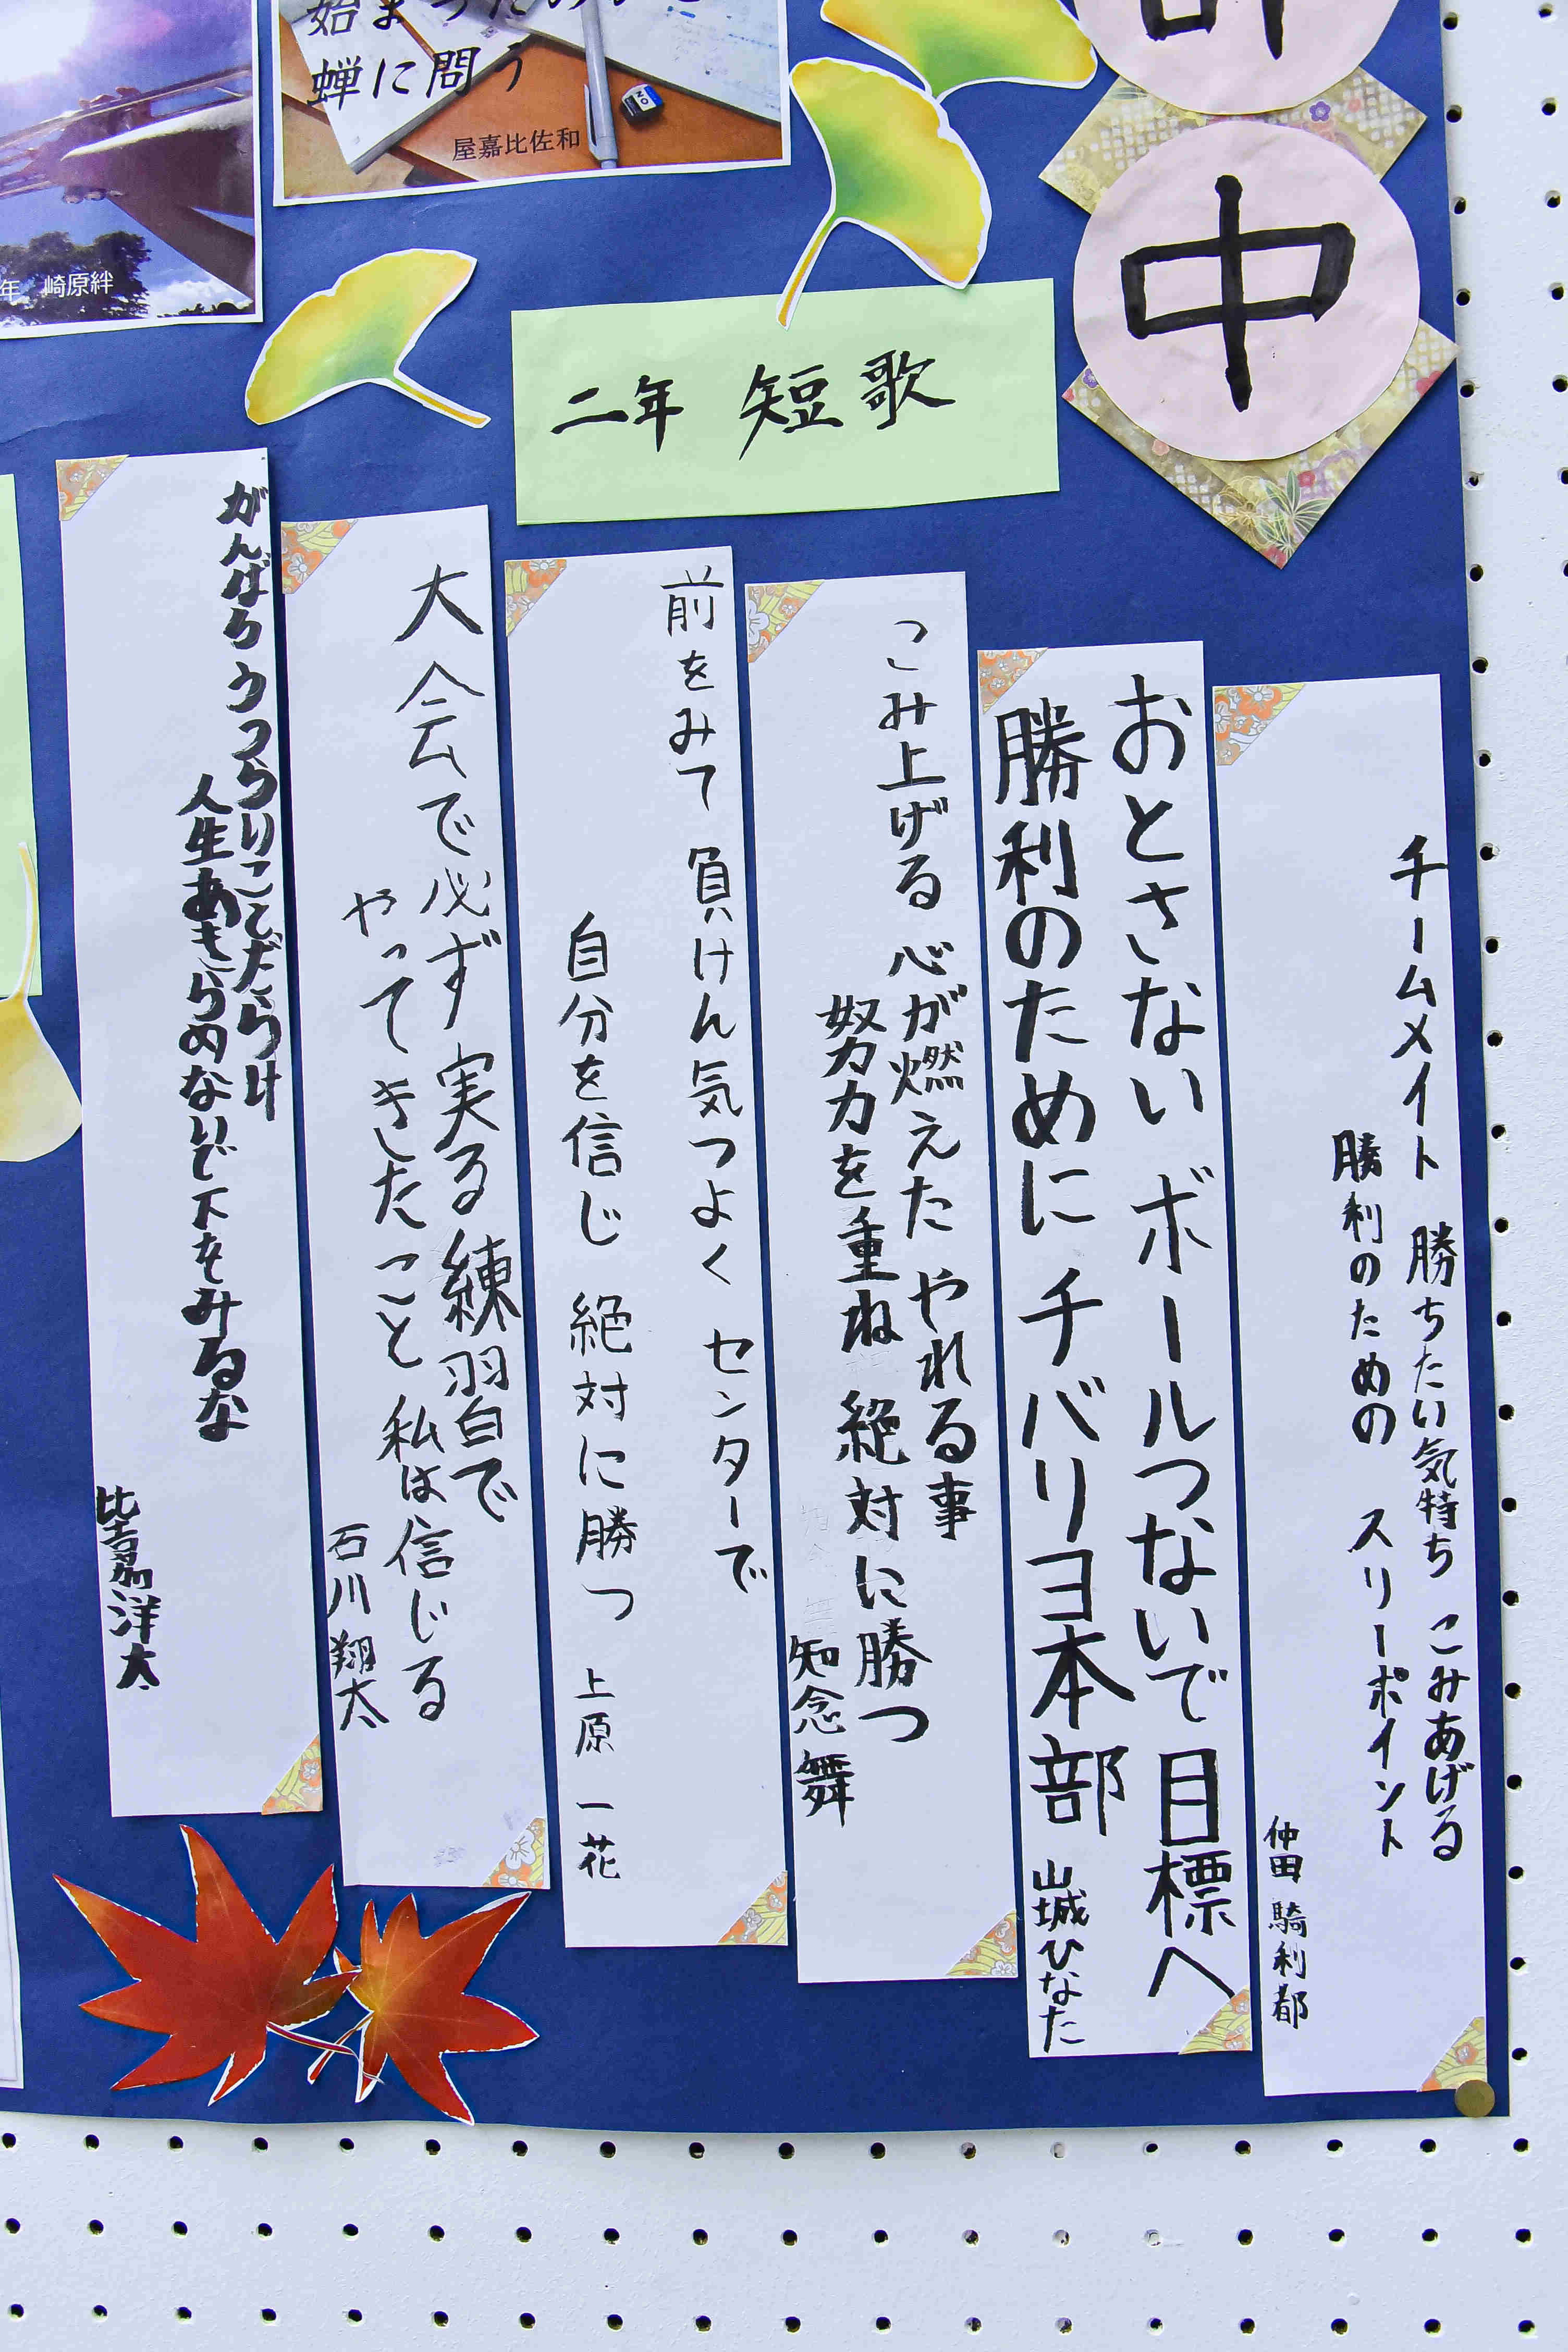 蝉に問う
屋嘉比佐和
年 崎原絆
中
二年 短歌
チームメイト 勝ちたい気持ち こみあげる
勝利のための スリーポイント
仲田 騎利都
おとさない ボールつないで 目標へ
勝利のために チバリヨ本部 山城ひなた
こみ上げる 心が燃えた やれる事
努力を重ね 絶対に勝つ
知念 舞
前をみて 負けん気つよく センターで
自分を信じ 絶対に勝つ 上原 一花
大会で必ず 実る練習で
やってきたこと 私は信じる
石川 翔太
がんばろう つらいことだらけ
人生あきらめないで下をみるな
比嘉洋太